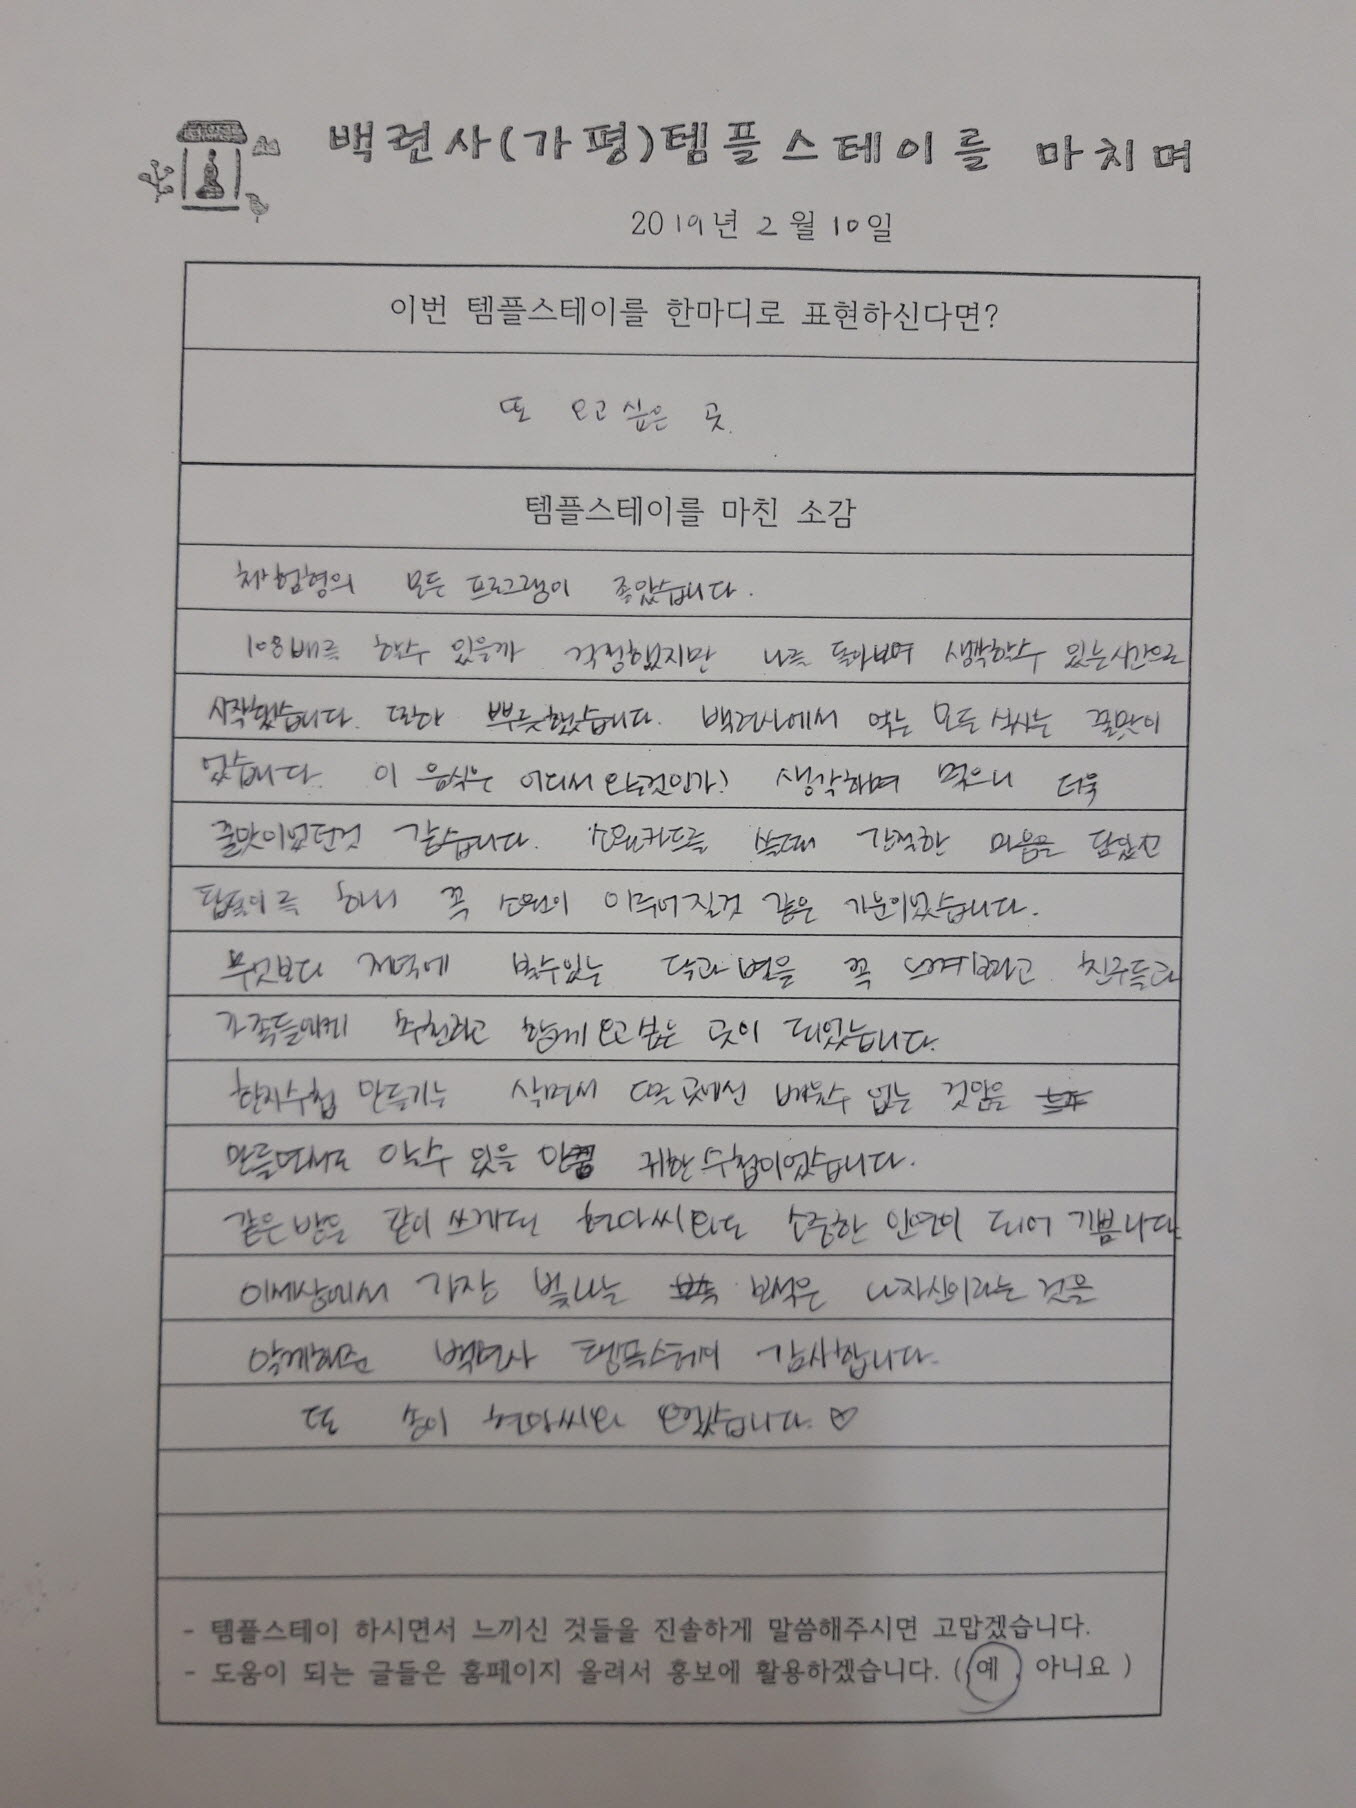 백련사(가평)템플스테이를 마치며
2019년 2월 10일
이번 템플스테이를 한마디로 표현하신다면?
또 오고싶은 곳.
템플스테이를 마친 소감
체험형의 모든 프로그램이 좋았습니다.
108배를 할수 있을까 걱정했지만 나를 돌아보며 생각할수 있는시간으로
시작했습니다. 뿌듯했습니다. 백련사에서 먹는 모든 식사는 꿀맛이
었습니다. 이 음식은 어디서 온것인가? 생각하며 먹으니 더욱
꿀맛이었던것 같습니다. 소원카드를 쓸때 간절한 마음을 담았고
탑돌이를 하니 꼭 소원이 이루어질것 같은 기분이었습니다.
무엇보다 저녁에 볼수있는 달과 별을 꼭 느껴보라고 친구들과
가족들에게 추천하고 함께 오고 싶은 곳이 되었습니다.
한지수첩 만들기는 다른곳에선 배울수 없는 것임을
만들면서도 알수 있을 귀한 수첩이었습니다.
같은방을 같이 쓰게된 소중한 인연이 되어 기쁩니다.
이세상에서 가장 빛나는 보석은 나자신이라는 것을
알게해준 백련사 템플스테이 감사합니다.
또 오겠습니다. ♡
- 템플스테이 하시면서 느끼신 것들을 진솔하게 말씀해주시면 고맙겠습니다.
- 도움이 되는 글들은 홈페이지 올려서 홍보에 활용하겠습니다. ( 예 , 아니요 )